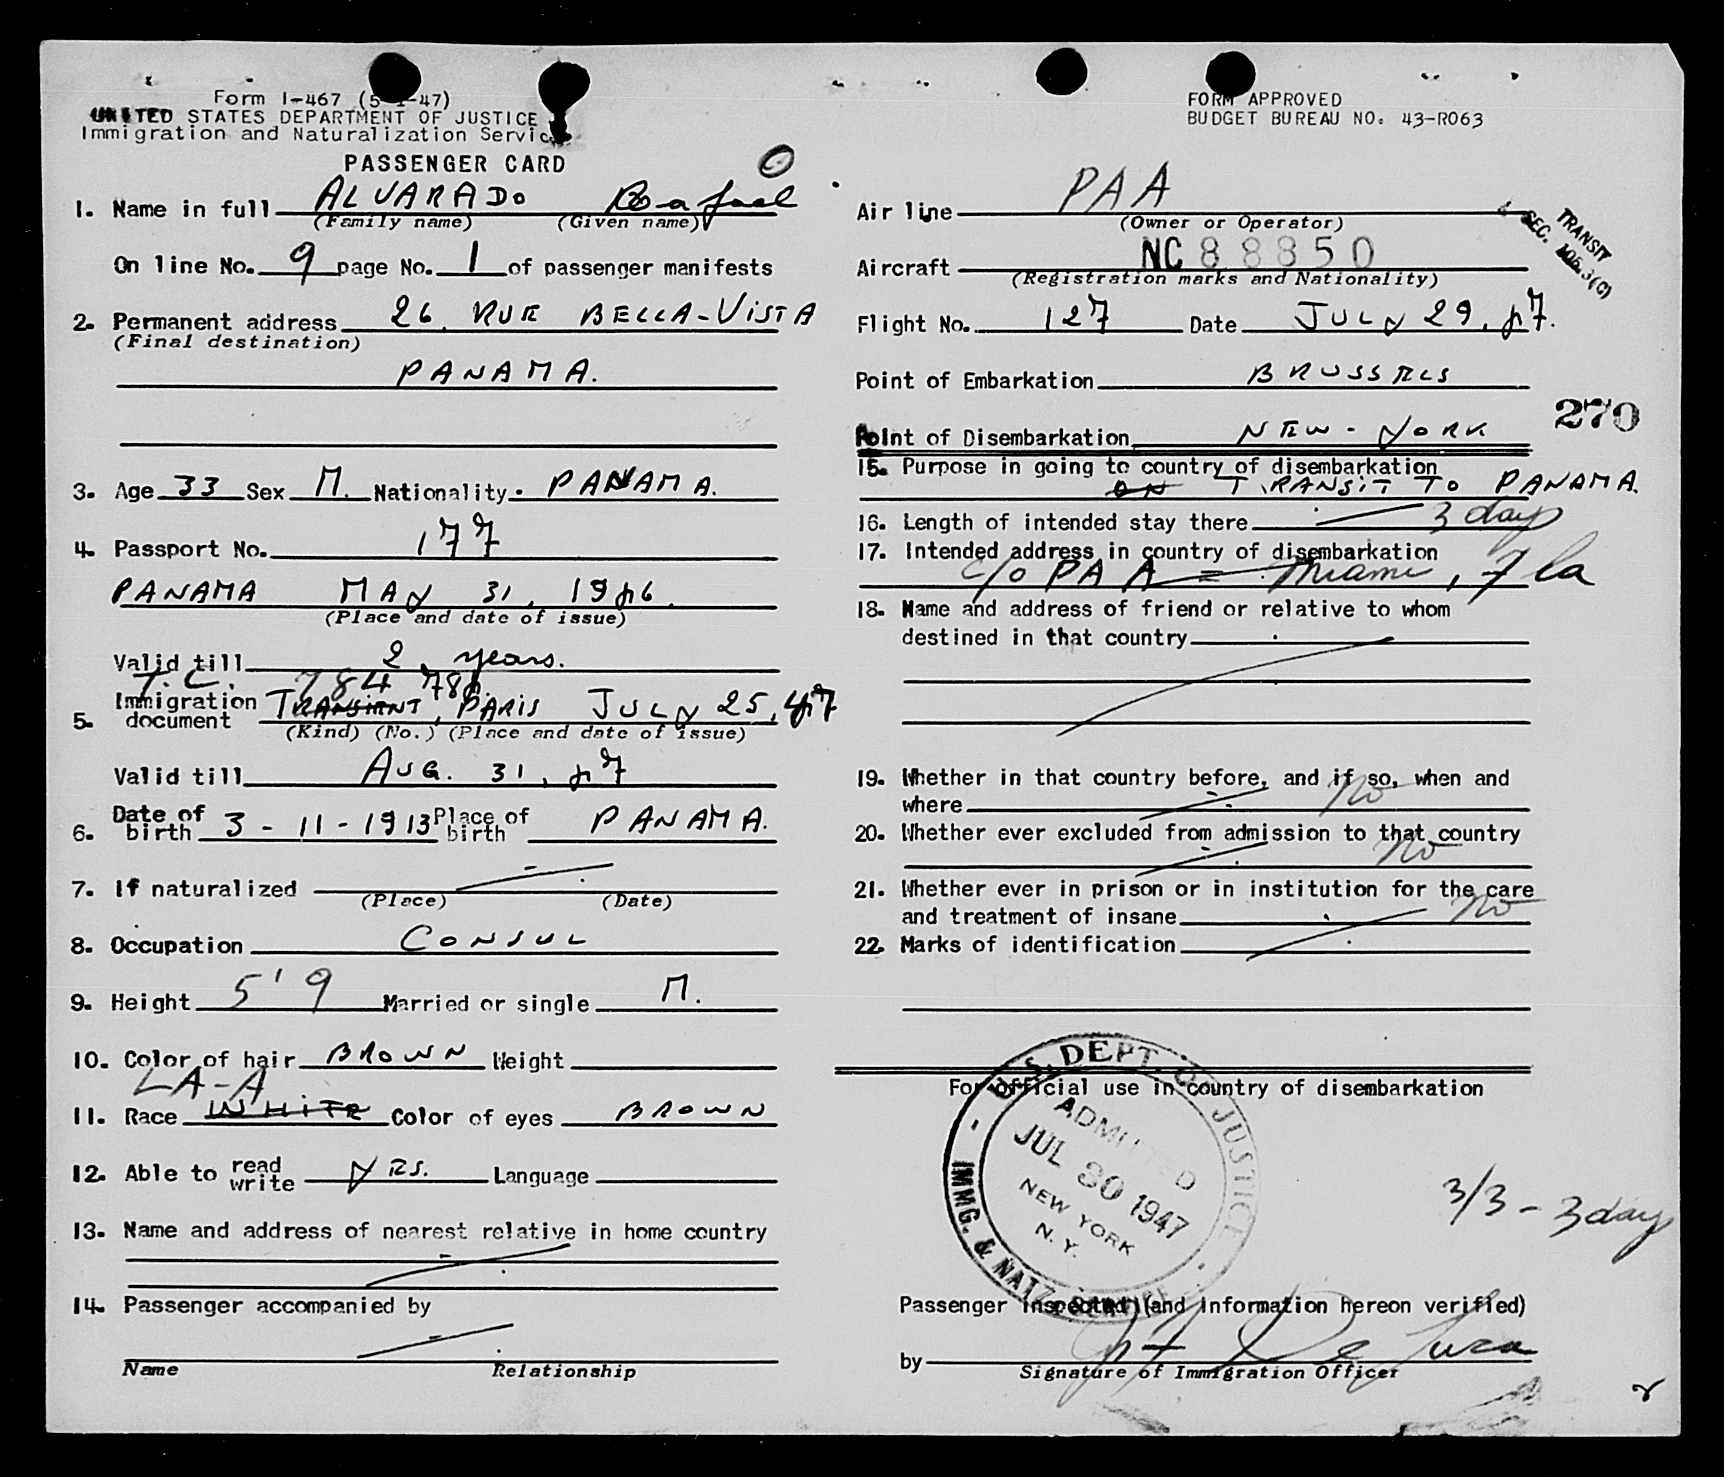 Form I-467 (5-1-47)
UNITED STATES DEPARTMENT OF JUSTICE
Immigration and Naturalization Service
PASSENGER CARD
1. Name in full ALVARADO Rafael
(Family name) (Given name)
On line No. 9 page No. 1 of passenger manifests
2. Permanent address 26, RUE BELLA-VISTA
(Final destination)
PANAMA.
3. Age 33 Sex M. Nationality PANAMA.
4. Passport No. 177
PANAMA MAY 31, 1946.
(Place and date of issue)
Valid till 2, years.
T.C. 784 784.
Immigration
5. document TRANSIENT, PARIS JULY 25, 47
(Kind) (No.) (Place and date of issue)
Valid till AUG. 31, 47
6. Date of birth 3-11-1913 Place of birth PANAMA.
7. If naturalized
(Place) (Date)
8. Occupation CONSUL
9. Height 5'9 Married or single M.
10. Color of hair BROWN Weight
LA-A
11. Race WHITE Color of eyes BROWN
12. Able to read write YES. Language
13. Name and address of nearest relative in home country
14. Passenger accompanied by
Name Relationship
FORM APPROVED
BUDGET BUREAU NO. 43-R063
Air line PAA
(Owner or Operator)
TRANSIT
SEC. 3(C)
Aircraft NC 88850
(Registration marks and Nationality)
Flight No. 127 Date JULY 29, 47.
Point of Embarkation BRUSSELS
270
Point of Disembarkation NEW-YORK
15. Purpose in going to country of disembarkation
ON TRANSIT TO PANAMA.
16. Length of intended stay there 3 days
17. Intended address in country of disembarkation
c/o PAA = Miami, Fla
18. Name and address of friend or relative to whom
destined in that country
19. Whether in that country before, and if so, when and
where No
20. Whether ever excluded from admission to that country
No
21. Whether ever in prison or in institution for the care
and treatment of insane No
22. Marks of identification
For official use in country of disembarkation
U.S. DEPT. OF JUSTICE
ADMITTED
JUL 30 1947
NEW YORK
N.Y.
IMMG. & NATZ. SERVICE
3/3 - 3 days
Passenger inspected (and information hereon verified)
by De Luca
Signature of Immigration Officer